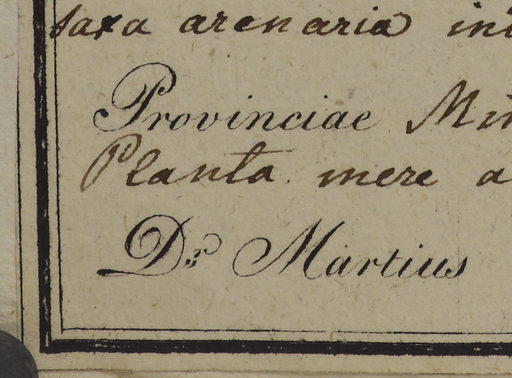 saxa arenaria in
Provinciae Min
Planta mere a
Dr. Martius